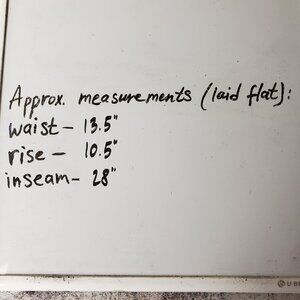 Approx. measurements (laid flat):
waist - 13.5"
rise - 10.5"
inseam - 28"